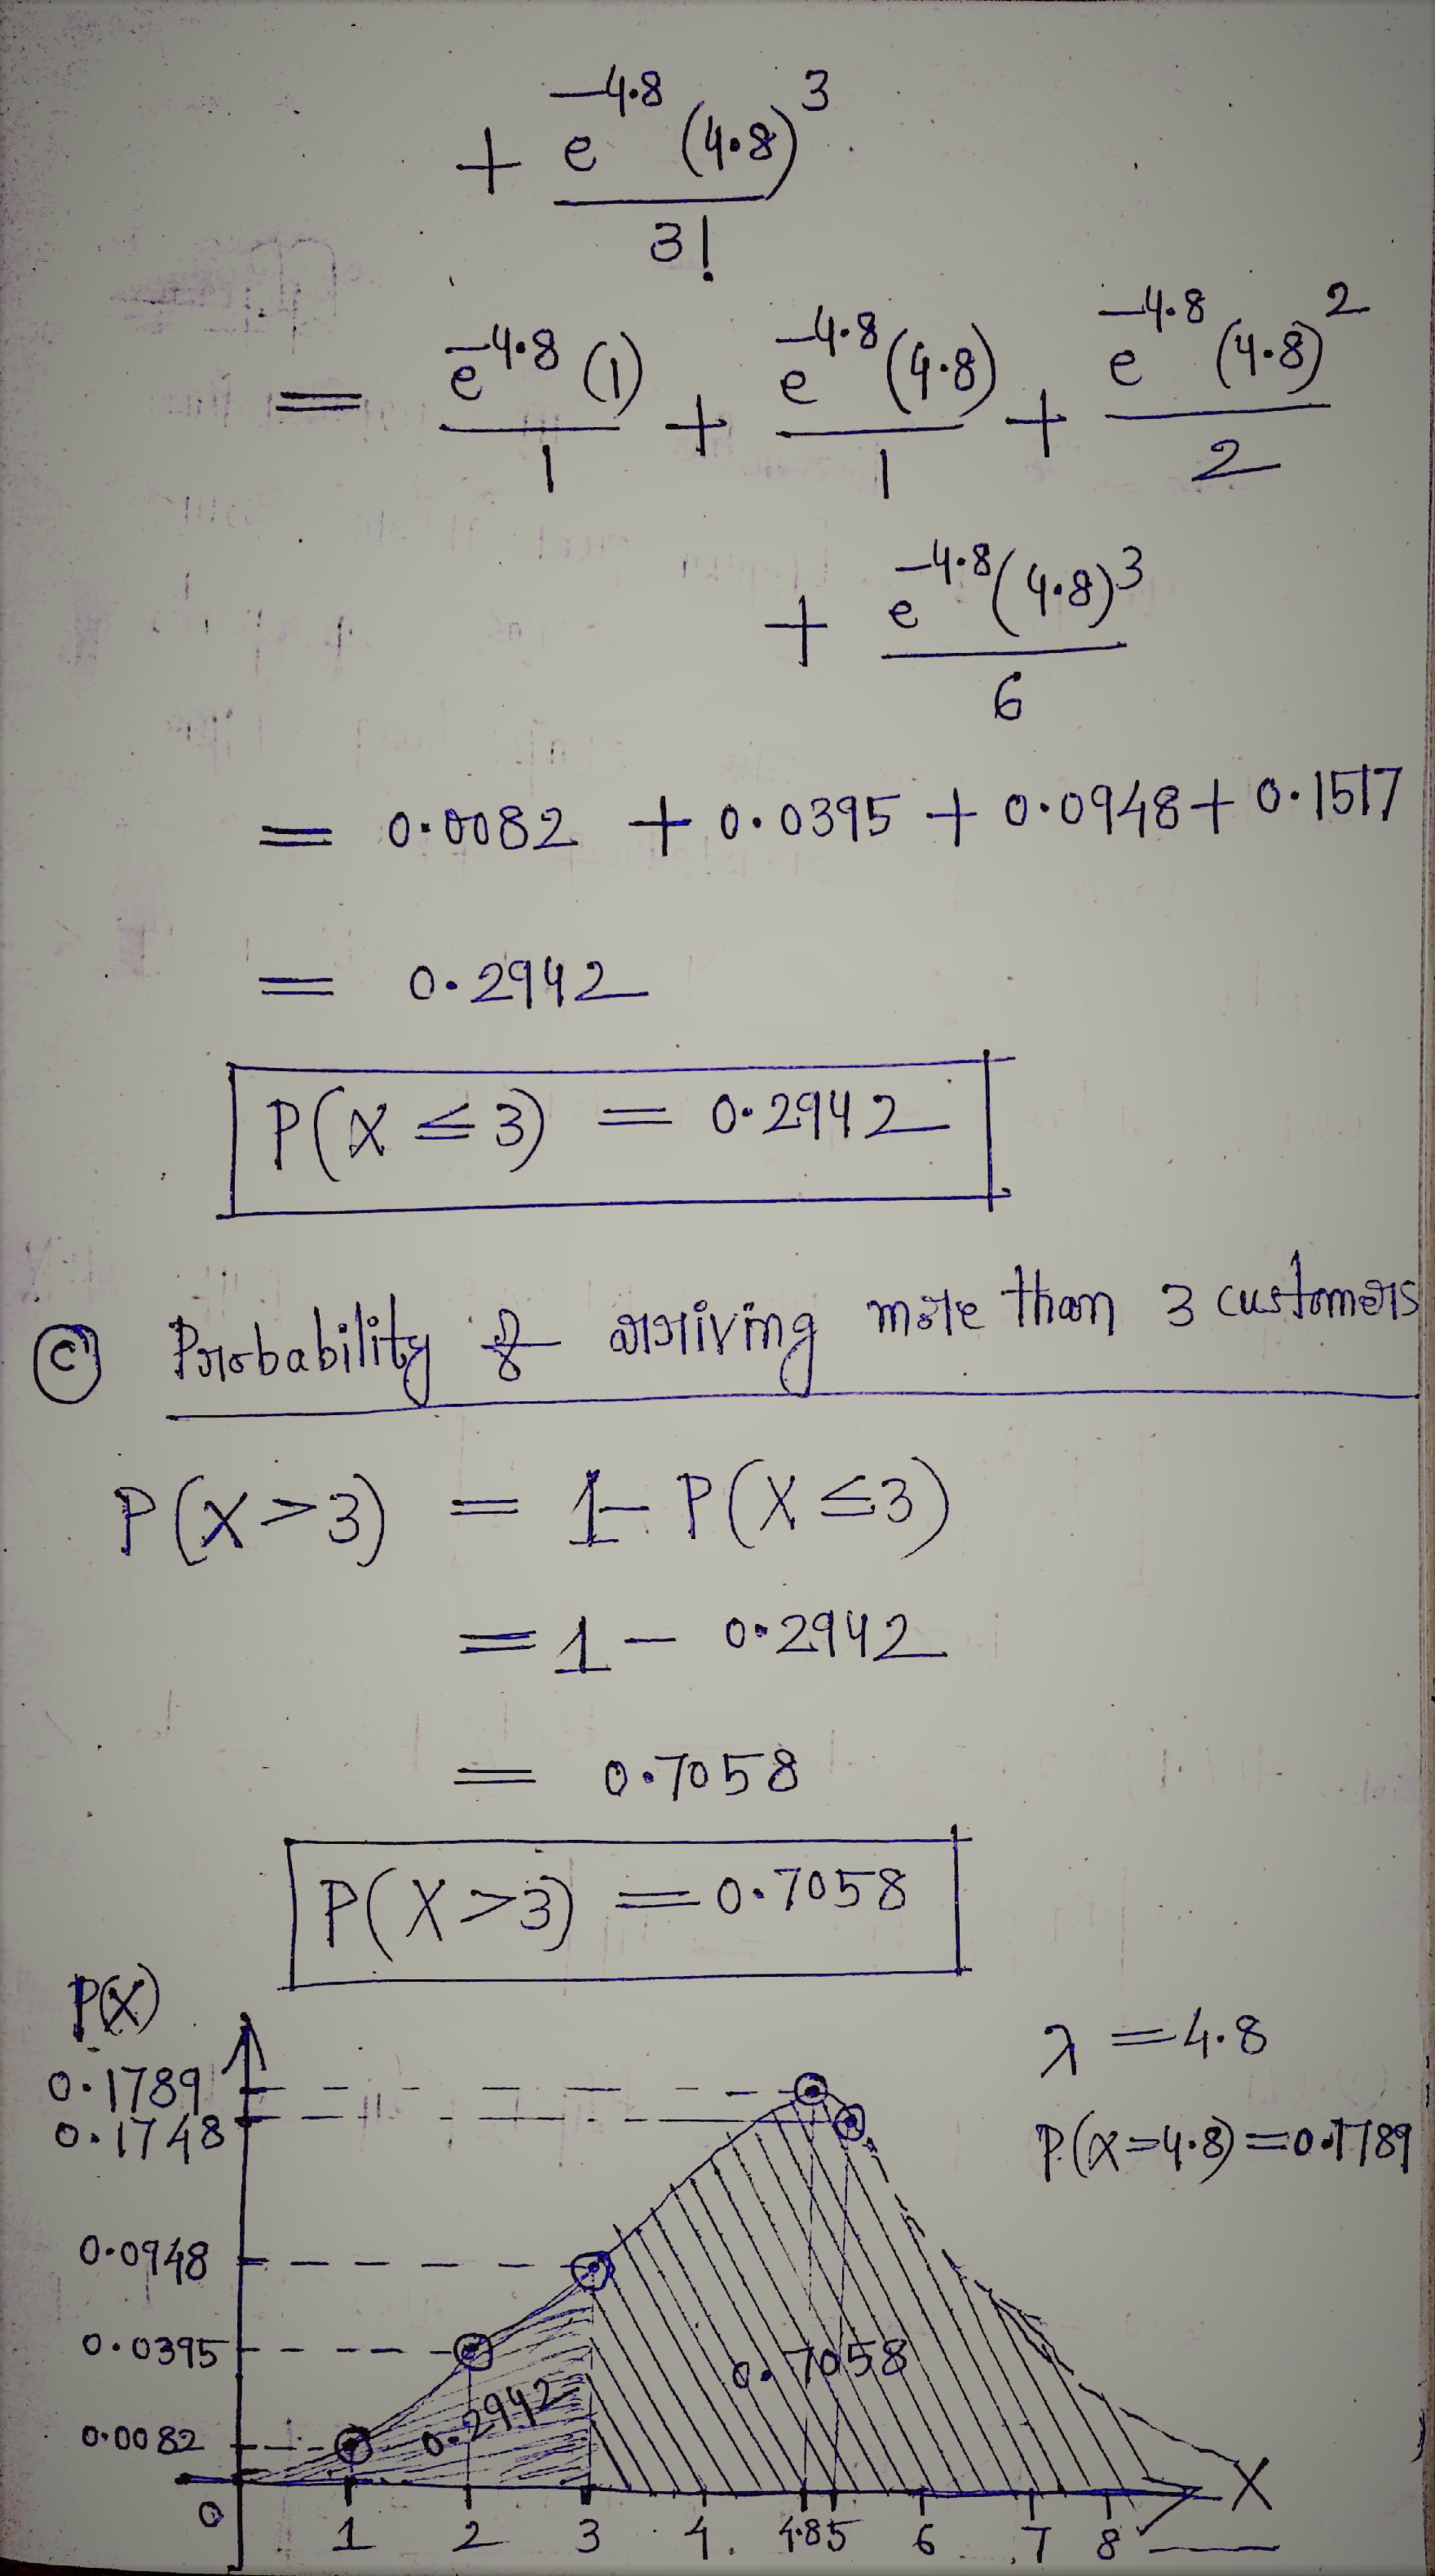 + e^-4.8 (4.8)^3 / 3!
= e^-4.8 (1) / 1 + e^-4.8 (4.8) / 1 + e^-4.8 (4.8)^2 / 2
+ e^-4.8 (4.8)^3 / 6
= 0.0082 + 0.0395 + 0.0948 + 0.1517
= 0.2942
P(X ≤ 3) = 0.2942
(C) Probability of arriving more than 3 customers
P(X > 3) = 1 - P(X ≤ 3)
= 1 - 0.2942
= 0.7058
P(X > 3) = 0.7058
P(X)
λ = 4.8
0.1789
0.1748
P(X=4.8) = 0.1789
0.0948
0.0395
0.7058
0.2942
0.0082
X
0 1 2 3 4 4.8 5 6 7 8